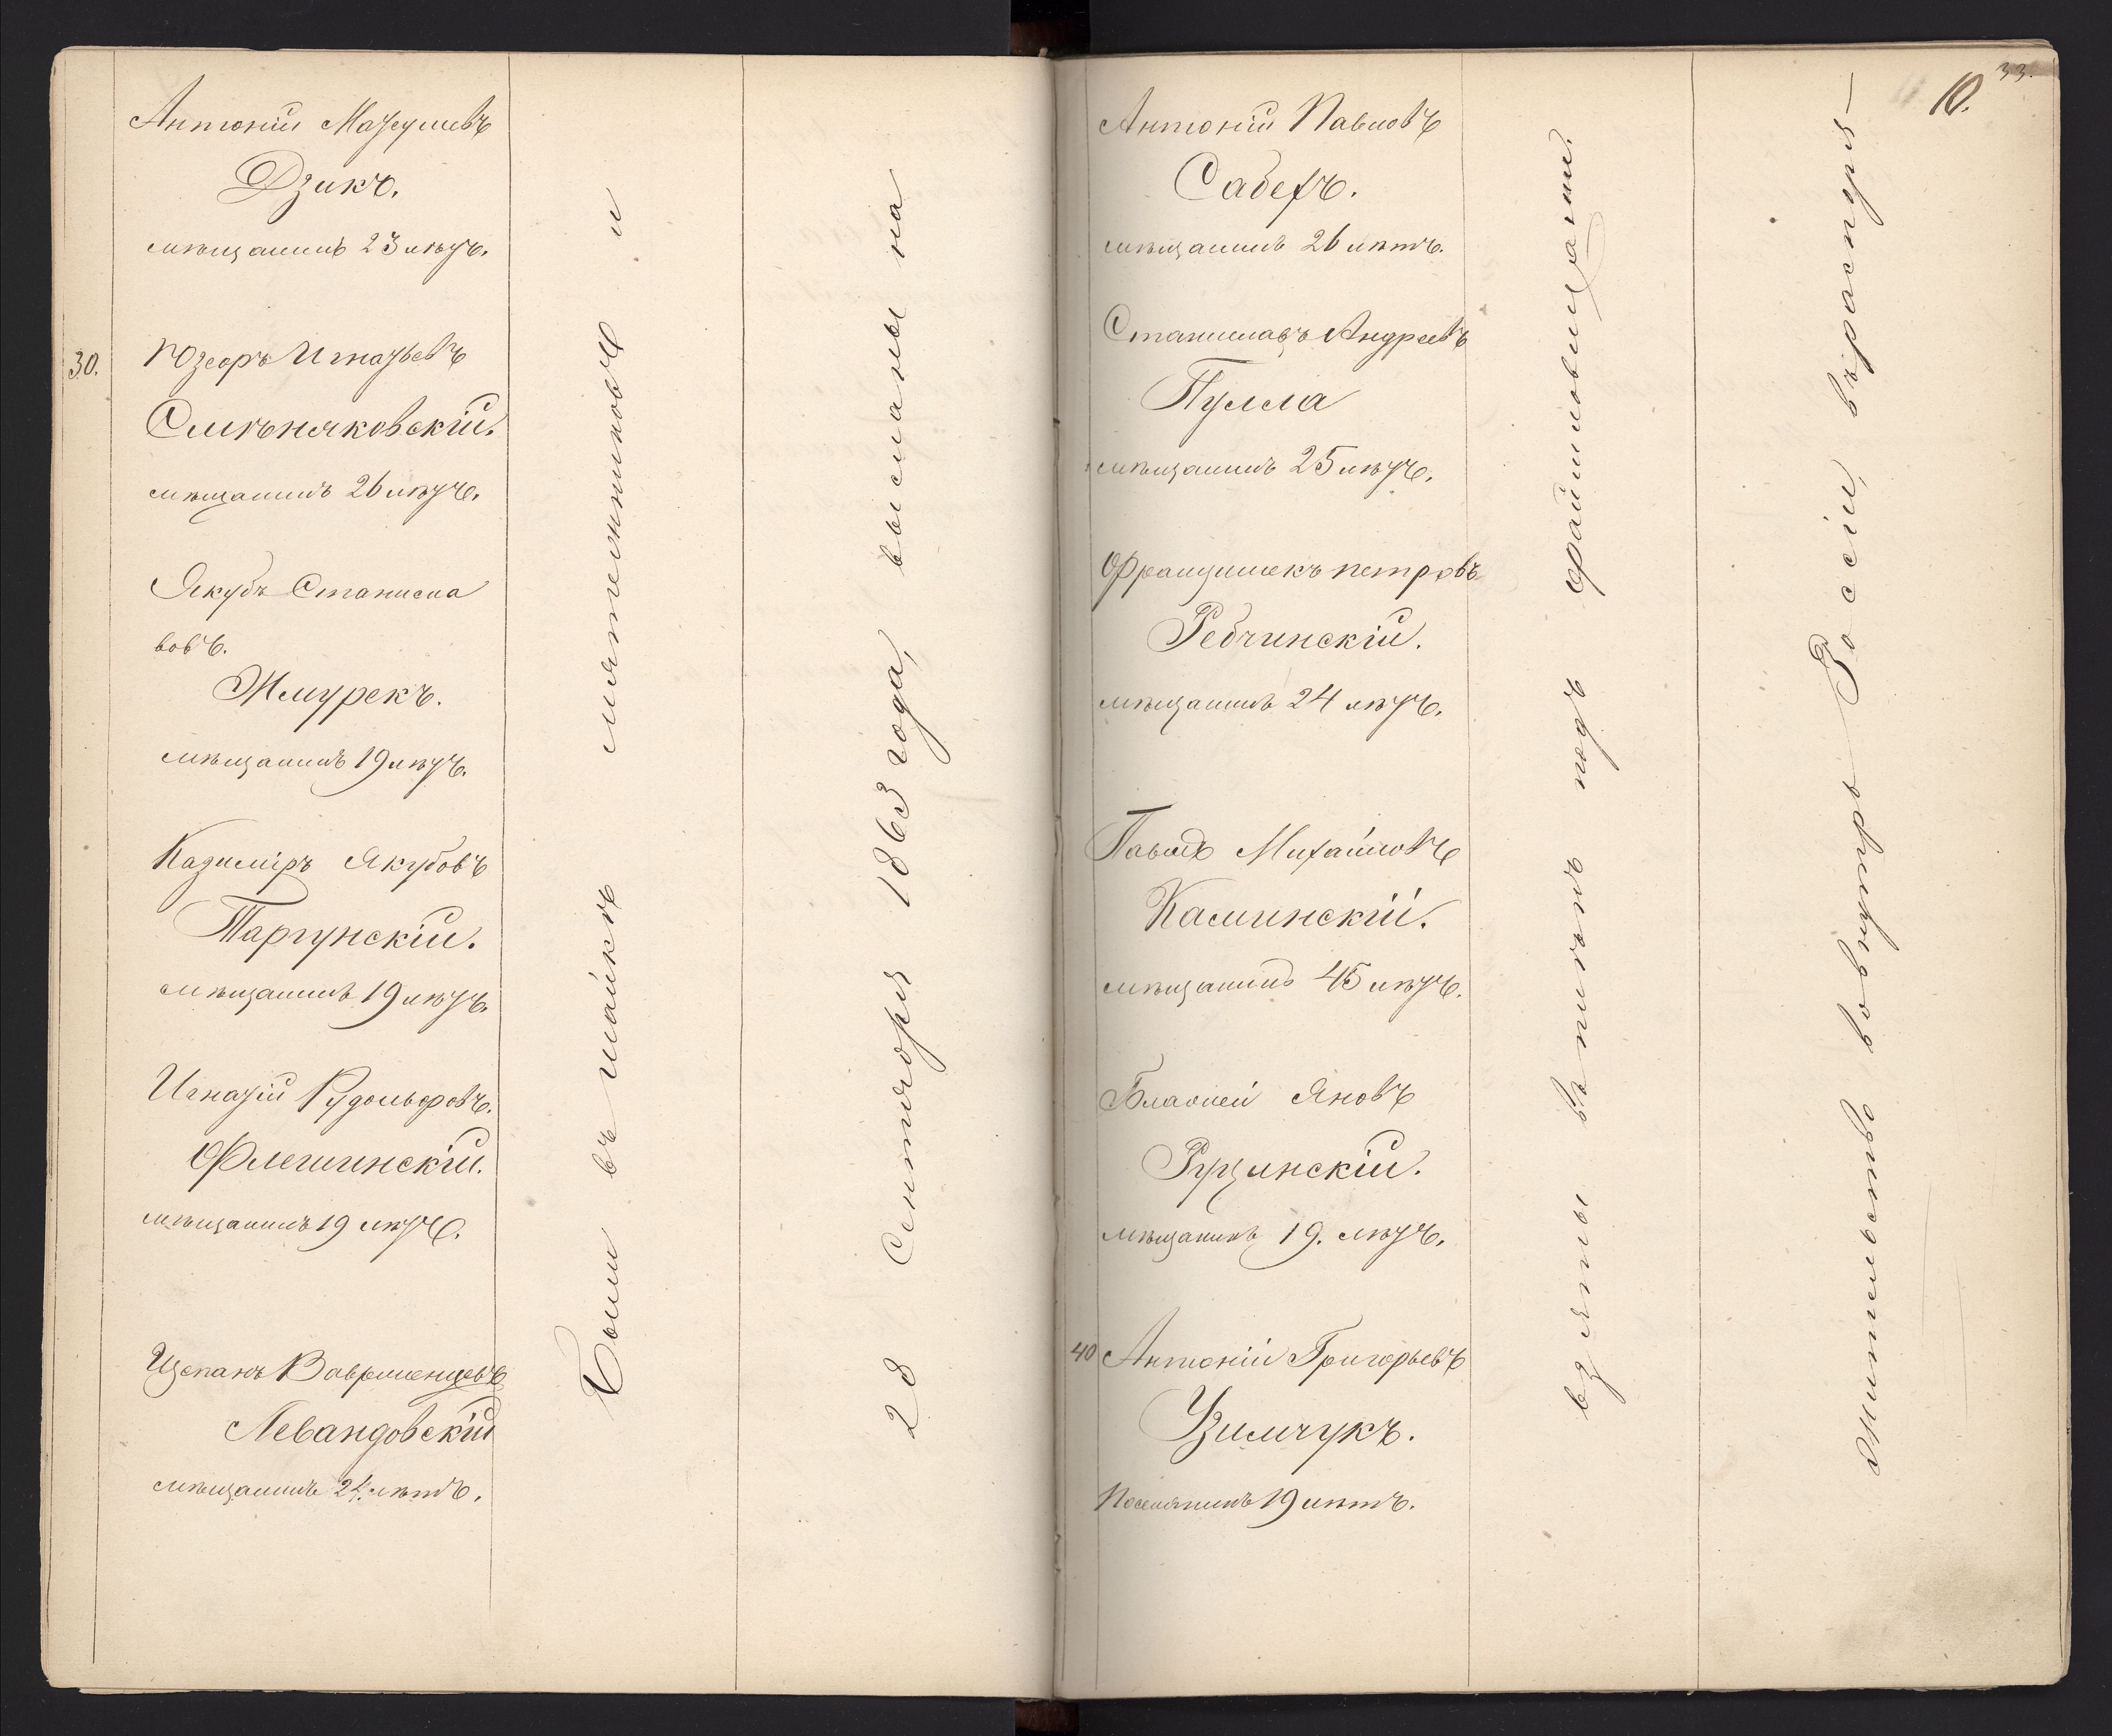 Антоній Матеушевъ
Дзикъ.
мѣщанинъ 23 лѣтъ.
30. Юзефъ Игнатьевъ
Смѣняковскій.
мѣщанинъ 26 лѣтъ.
Якубъ Станисла
вовъ.
Жмурекъ.
мѣщанинъ 19 лѣтъ.
Казимиръ Якубовъ
Таргунскій.
мѣщанинъ 19 лѣтъ.
Игнатій Рудольфовъ.
Флешинскій.
мѣщанинъ 19 лѣтъ.
Щепанъ
Левандовскій
мѣщанинъ 24 лѣтъ.
Были въ шайкѣ мятежниковъ и
28 Сентября 1863 года, высланы на
33.
10.
Антоній Павловъ
Сабехъ.
мѣщанинъ 26 лѣтъ.
Станиславъ Андреевъ
Пулла
мѣщанинъ 25 лѣтъ.
Францишекъ петровъ
Ребчинскій.
мѣщанинъ 24 лѣтъ.
Павелъ Михайловъ
Каминскій.
мѣщанинъ 45 лѣтъ.
Блажей Яновъ
Рущинскій.
мѣщанинъ 19. лѣтъ.
40 Антоній Григорьевъ
Узимчукъ.
Поселянинъ 19 лѣтъ.
взяты въ плѣнъ подъ
жительство во внутрь Россіи, въ распоря-